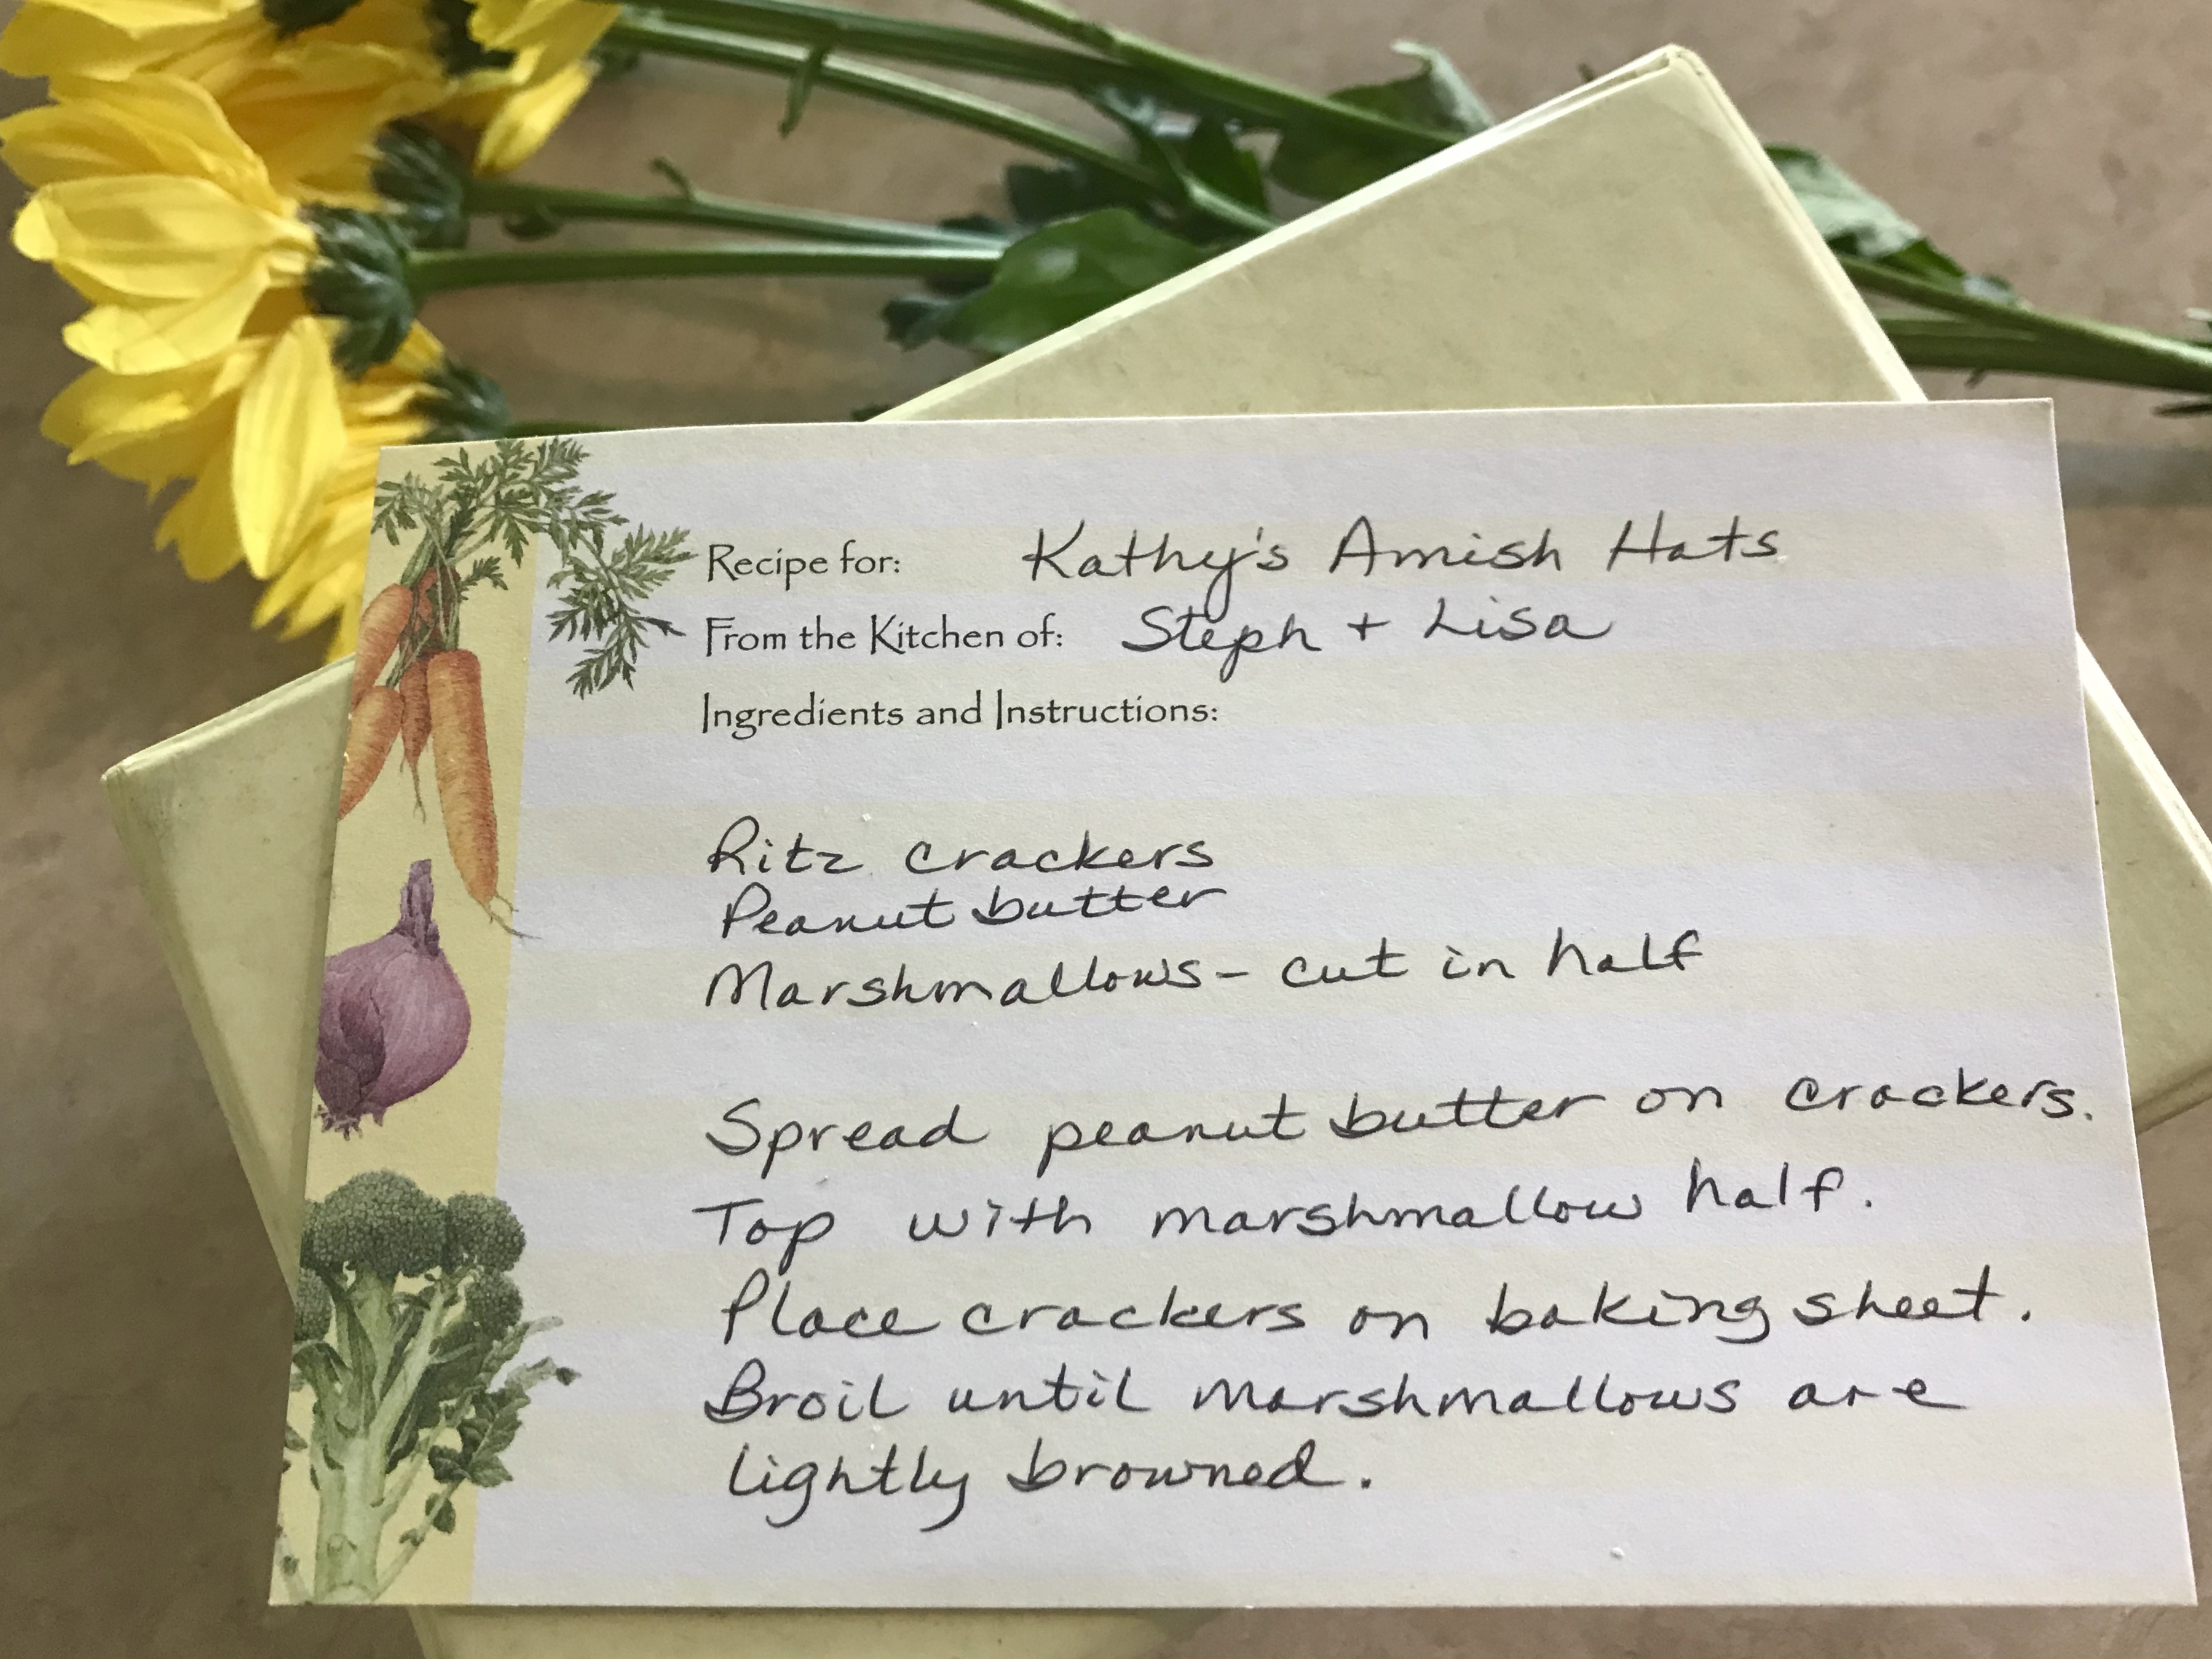 Recipe for: Kathy's Amish Hats
From the Kitchen of: Steph + Lisa
Ingredients and Instructions:
Ritz crackers
Peanut butter
Marshmallows - cut in half
Spread peanut butter on crackers.
Top with marshmallow half.
Place crackers on baking sheet.
Broil until marshmallows are
lightly browned.